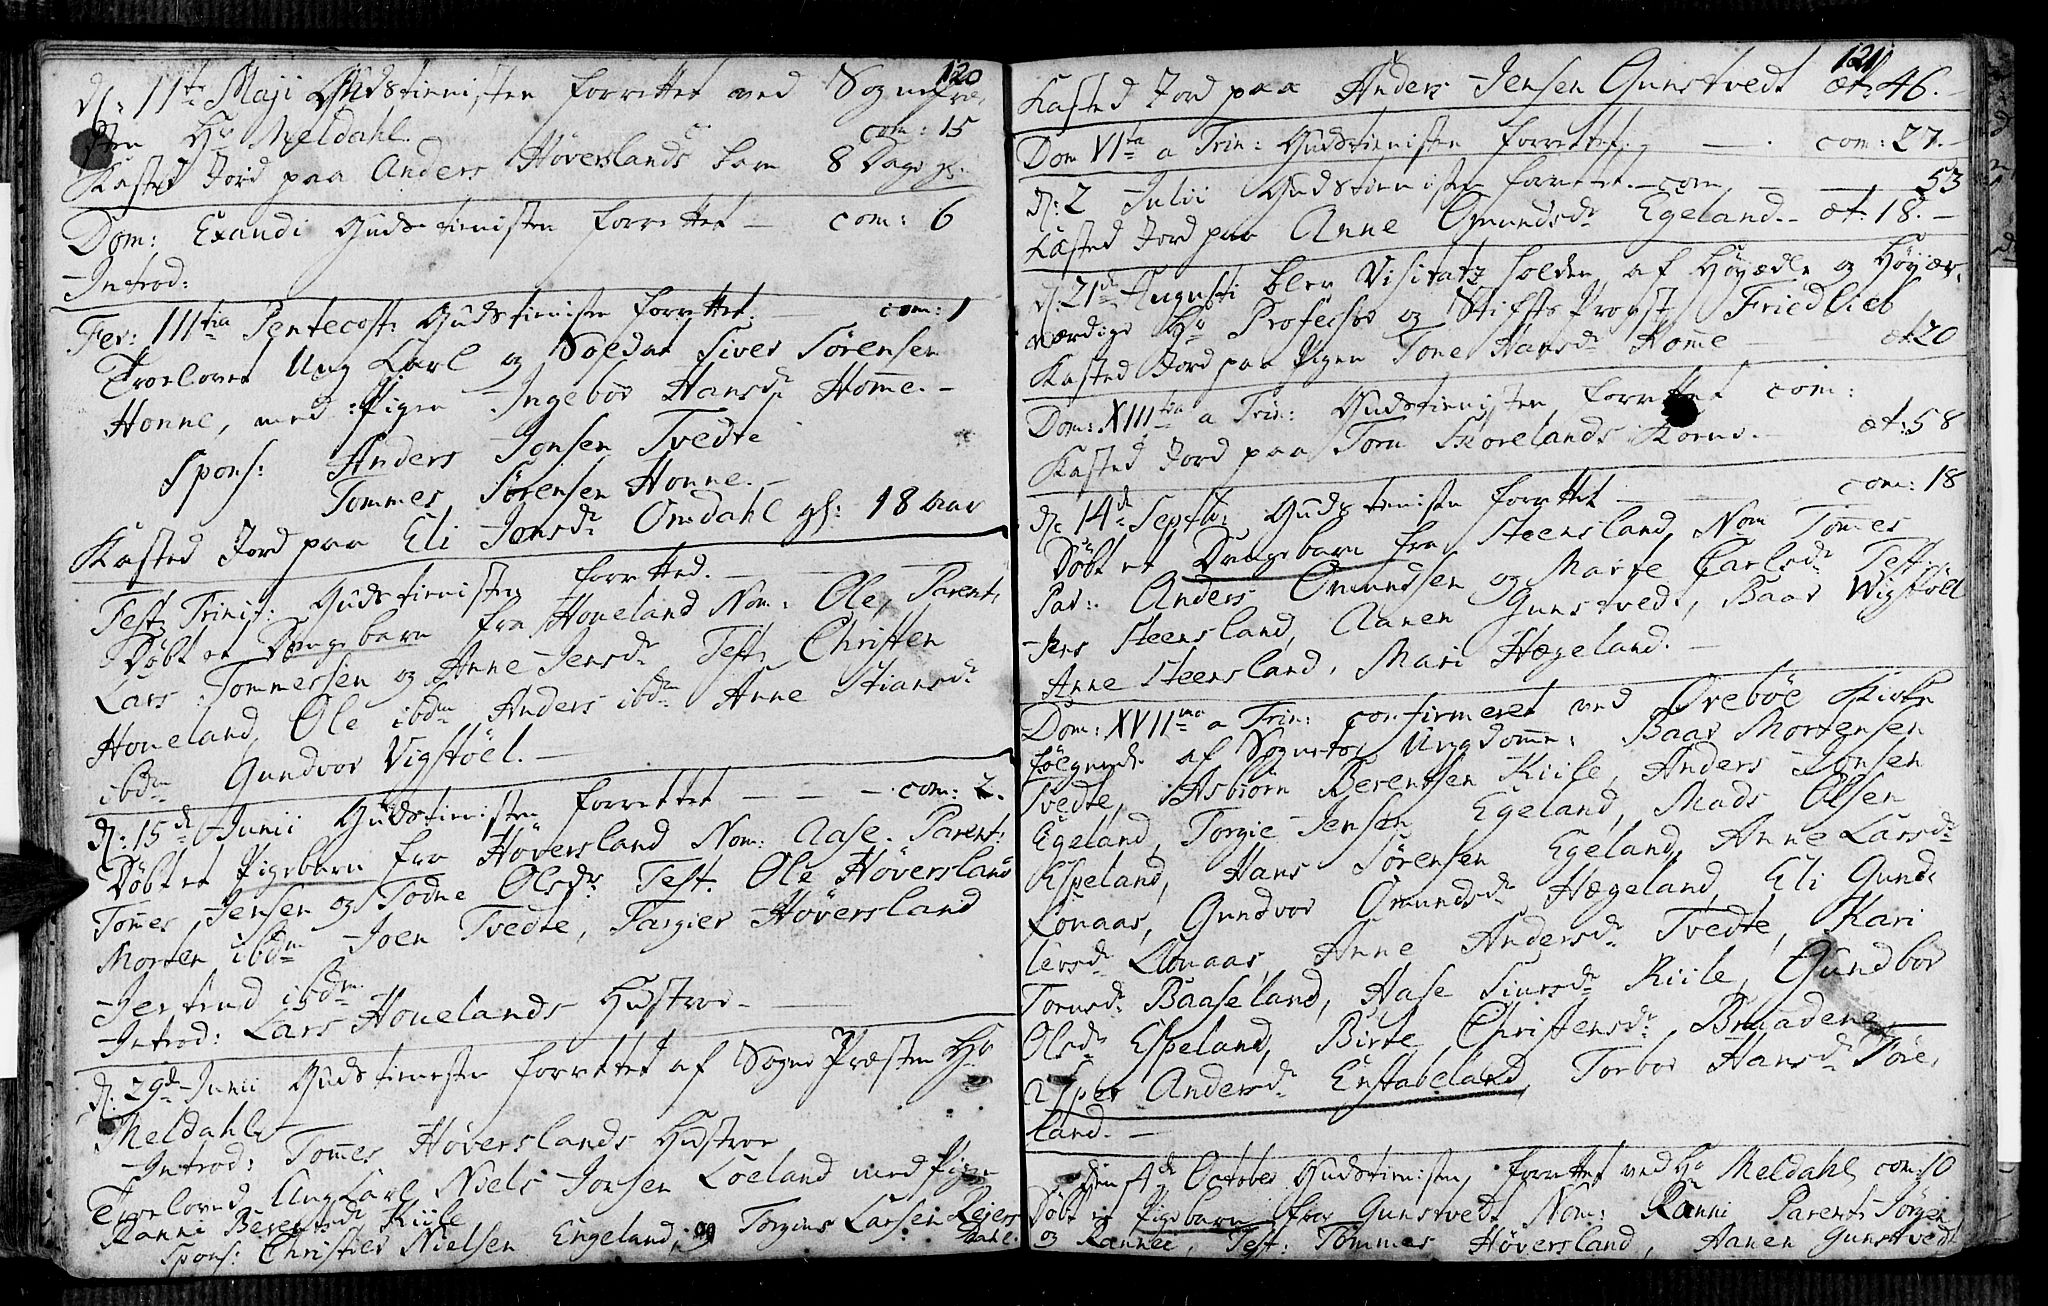 120
d: 11te Maji Gudstienisten forrettet ved Sognepræ-
sten Hr Meldahl. com: 15
Kasted Jord paa Anders Höverslands barn 8 Dage gl:
Dom: Exaudi Gudstienisten forrettet — com: 6
Introd:
Fer: IIItia Pentecost: Gudstienisten forrettet. — com: 1
Troelovet Ung Karl og Soldat Siver Sörensen
Honne, med Pigen Ingebor Hansdr Homme. —
Spons: Anders Jonsen Tvedte
Tommes Sörensen Honne. —
Kasted Jord paa Eli Jensdr Omdahl gl: 18 aar
Fest: Trinit: Gudstienisten forretted. —
Döbt et Drengebarn fra Houeland Nom: Ole, Parent:
Lars Tommessen og Anne Jensdr Test: Christen
Houeland, Ole ibdm Anders ibdm Anne Stiansdr
ibdm Gundvor Vigstöel. —
d: 15de Junii Gudstienisten forrettet — — — com: 2.
Döbt et Pigebarn fra Höversland Nom: Aase. Parent:
Tomes Jensen og Todne Olsdr Test. Ole Höversland
Morten ibdm Joen Tvedte, Targier Höversland
Jertrud ibdm.
Introd: Lars Houelands Hustroe —
d: 29de Junii Gudstienesten forrettet af Sogne Præsten Hr
Meldahl. —
Introd: Tomes Höverslands Hustroe
Troeloved Ung Karl Niels Jonsen Loeland med Pigen
Ranni Berentsdr Kiile
Spons: Christen Nielsen Engeland, og Torgius Larsen Leiers
dahl.
121
Kasted Jord paa Anders Jensen Gunstvedt æt: 46. —
Dom VIta a Trin: Gudstienisten forrettet. — com: 27. —
d: 2 Julii Gudstienisten forrettet. — com — — 53
Kasted Jord paa Anne Omundsdr Egeland. — æt. 18. —
d: 21de Augusti blev Visitatz holden af Höyædle og Höyær-
værdige Hr Professor og Stifts Provst Friedlieb
Kasted Jord paa Pigen Tone Hansdr Homme — æt 20
Dom: XIIItia a Trin: Gudstienisten forrettet com:
Kasted Jord paa Torn Skorelands Kone. — æt: 58
d: 14de Septbr: Gudstienisten forrettet — — com: 18
Döbt et Drengebarn fra Steensland, Nom Tomes
Par: Anders Omundsen og Marte Carlsdr Test:
Jens Steensland, Aanen Gunstvedt, Baar Wigstöel
Anne Steensland, Mari Hægeland. —
Dom: XVIIma a Trin: confirmeret ved Övebøe Kirke
fölgende af Sognets Ungdomme: Baar Mortensen
Tvedte, Asbiörn Berentsen Kiile, Anders Jonsen
Egeland, Torgie Jensen Egeland, Mads Olsen
Espeland, Hans Sörensen Egeland, Anne Larsdr
Lonaas, Gundvor Omundsdr Hægeland, Eli Gund-
lersdr Lonaas, Anne Andersdr Tvedte, Kari
Tornsdr Baaseland, Aase Siursdr Kiile, Gundbor
Olsdr Espeland, Birte Christensdr Braadene
Andersdr Enstabeland, Torbor Hansdr Töre-
land. —
den 4de October Gudstienisten forrettet ved Hr Meldahl com: 10
Döbt et Pigebarn fra Gunstvedt Nom: Ranni Parent: Jörgen
og Rannei, Test: Tommes Höversland, Aanen Gunstvedt